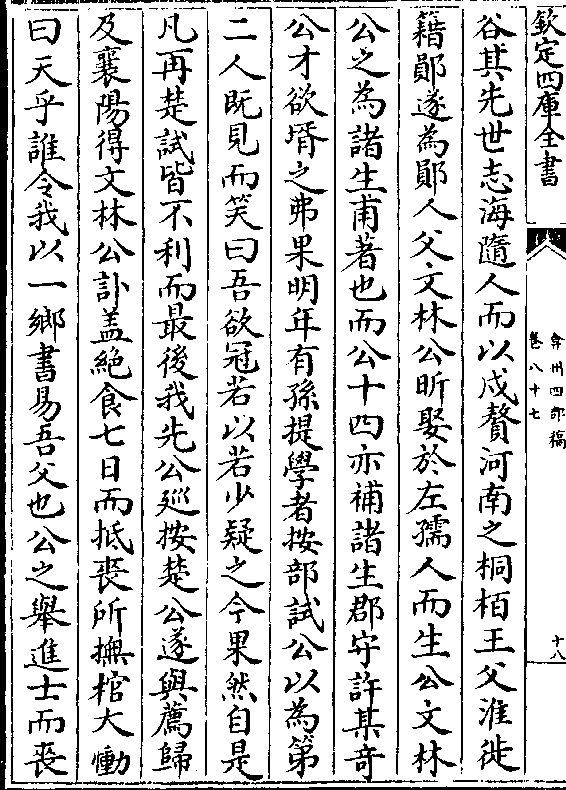 欽定四庫全書
弇州四部稿
卷八十七
十八
谷其先世志海隨人而以戍贅河南之桐栢王父淮徙
籍鄖遂為鄖人父文林公昕娶於左孺人而生公文林
公之為諸生甫著也而公十四亦補諸生郡守許某奇
公才欲壻之弗果明年有孫提學者按部試公以為第
二人既見而笑曰吾欲冠若以若少疑之今果然自是
凡再楚試皆不利而最後我先公廵按楚公遂與薦歸
及襄陽得文林公訃盖絶食七日而抵喪所撫棺大慟
曰天乎誰令我以一鄉書易吾父也公之舉進士而喪